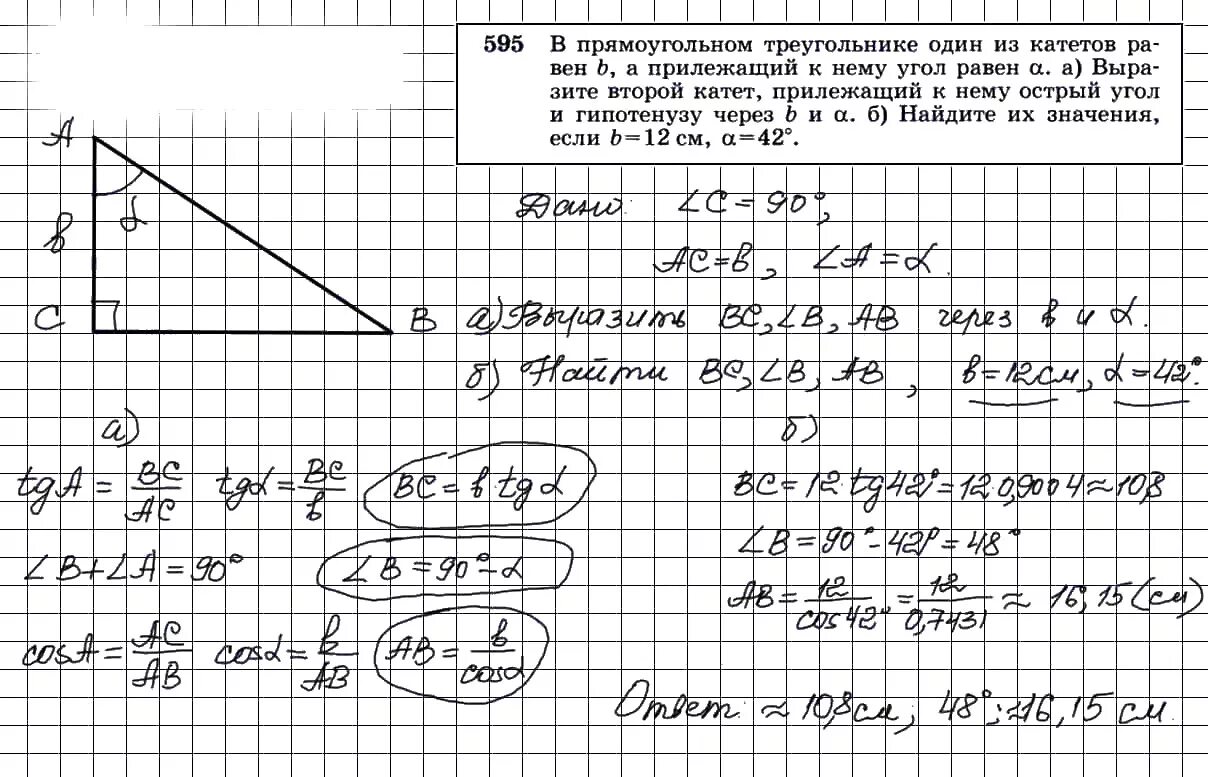 595 В прямоугольном треугольнике один из катетов ра-
вен b, а прилежащий к нему угол равен α. а) Выра-
зите второй катет, прилежащий к нему острый угол
и гипотенузу через b и α. б) Найдите их значения,
если b=12 см, α=42°.
A
α
b
C
B
Дано: ∠C = 90°,
AC = b, ∠A = α.
а) Выразить BC, ∠B, AB через b и α.
б) Найти BC, ∠B, AB, b = 12 см, α = 42°.
а)
tgA = BC/AC tgα = BC/b BC = b tgα
∠B + ∠A = 90° ∠B = 90° - α
cosA = AC/AB cosα = b/AB AB = b/cosα
б)
BC = 12·tg42° = 12·0,9004 ≈ 10,8
∠B = 90° - 42° = 48°
AB = 12/cos42° = 12/0,7431 ≈ 16,15 (см)
Ответ: ≈ 10,8 см; 48°; ≈16,15 см.